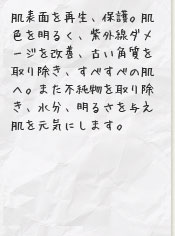 肌表面を再生、保護。肌
色を明るく、紫外線ダメ
ージを改善、古い角質を
取り除き、すべすべの肌
へ。また不純物を取り除
き、水分、明るさを与え
肌を元気にします。